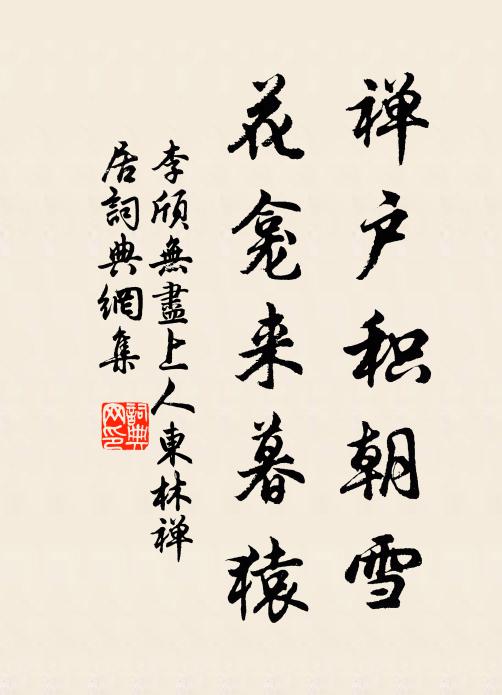 禅户积朝雪
花龛来暮猿
李颀無盡上人東林禅
居詞典網集
詞典
网印